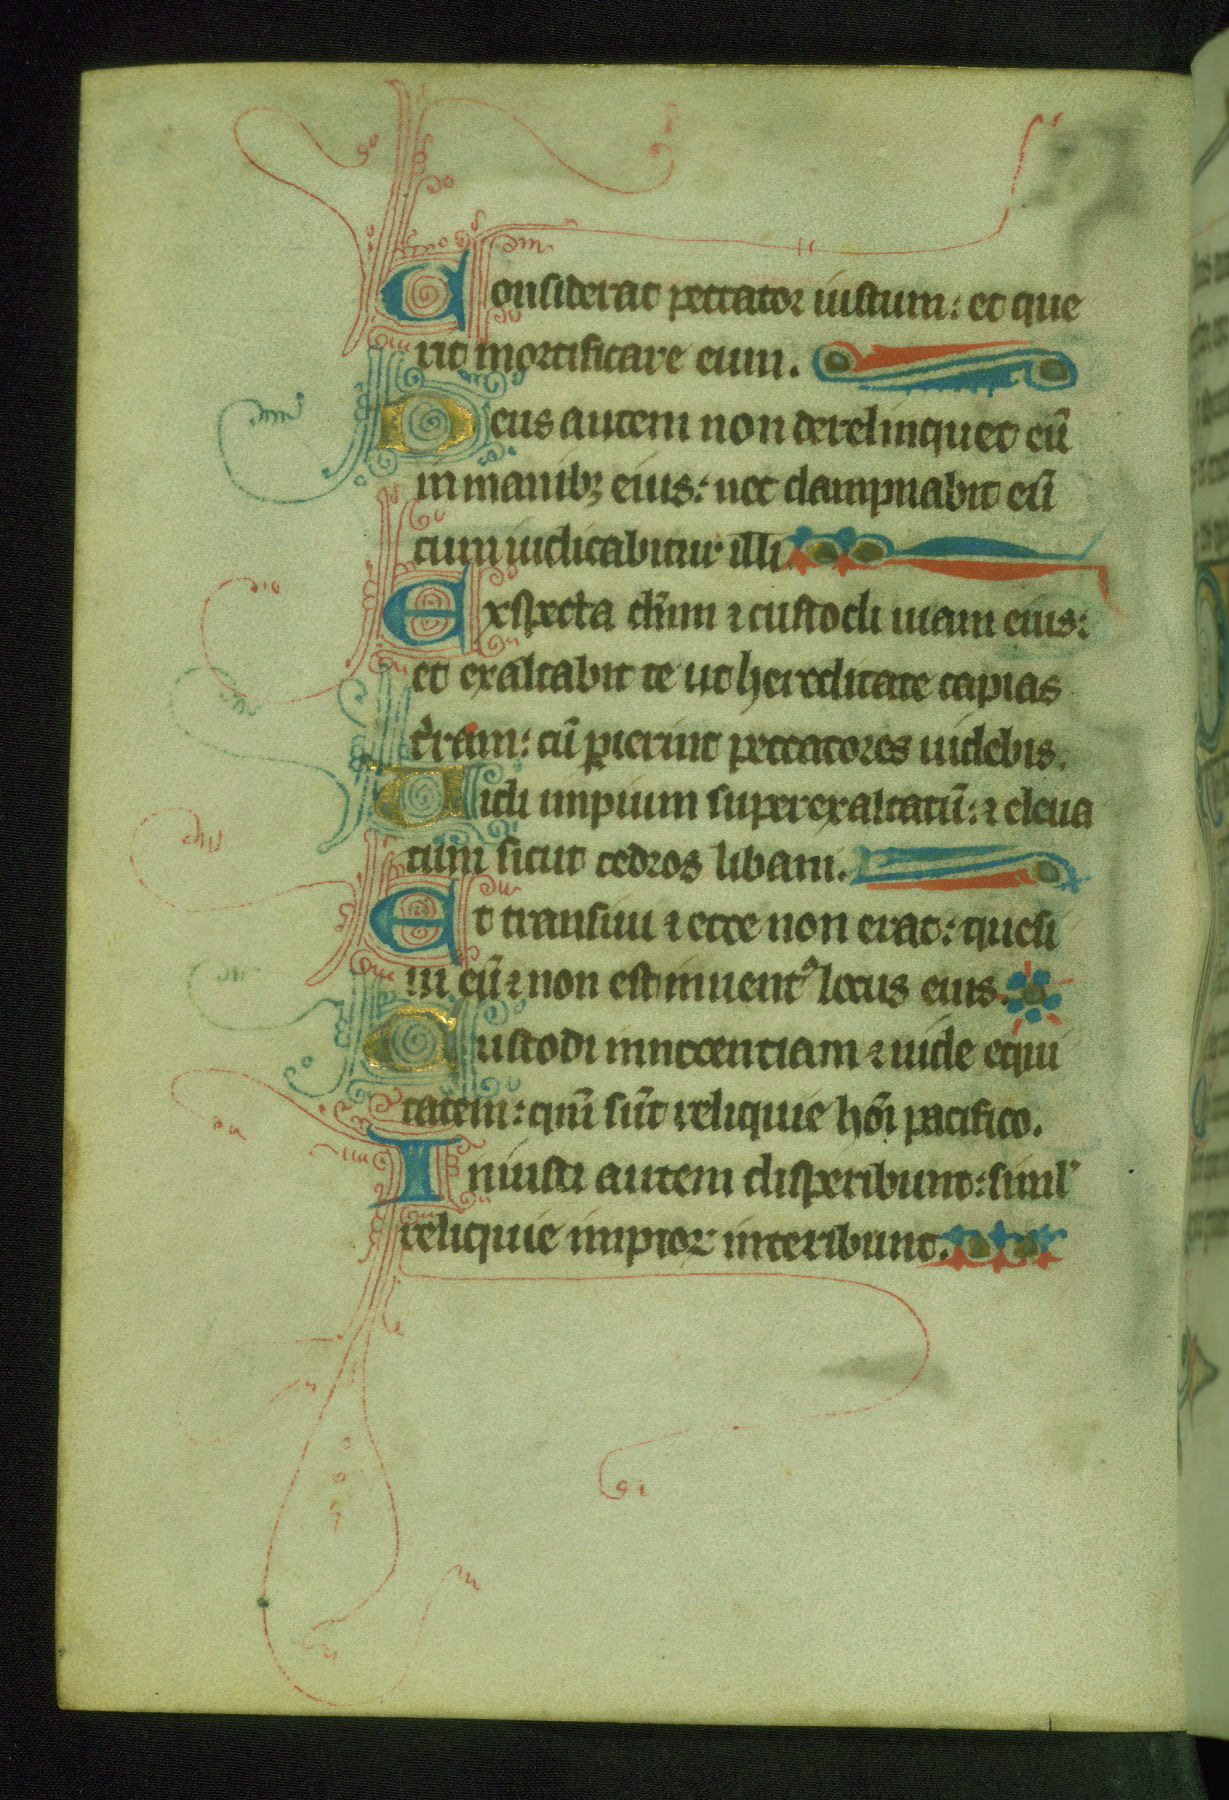 Considerat peccator iustum: et que
rit mortificare eum.
Deus autem non derelinquet eū
in manibꝫ eius: nec dampnabit eū
cum iudicabitur illi
Exspecta dn̄m ⁊ custodi uiam eius:
et exaltabit te ut hereditate capias
t̉ram: cū ꝑierint peccatores uidebis.
Uidi impium superexaltatū: ⁊ eleua
tum sicut cedros libani.
Et transiui ⁊ ecce non erat: quesi
ui eū ⁊ non est inuentꝰ locus eius.
Custodi innocentiam ⁊ uide equi
tatem: qm̄ sūt reliquie hoī pacifico.
Iniusti autem disperibunt: simĺ
reliquie impioꝝ interibunt.